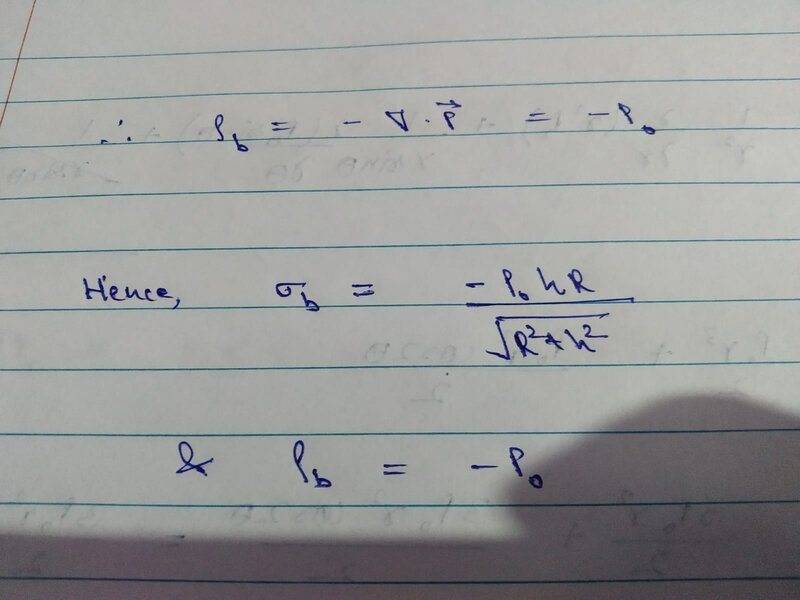 ∴ ρ_b = − ∇ · P⃗ = − P₀
Hence, σ_b = − P₀ h R / √(R² + h²)
& ρ_b = − P₀